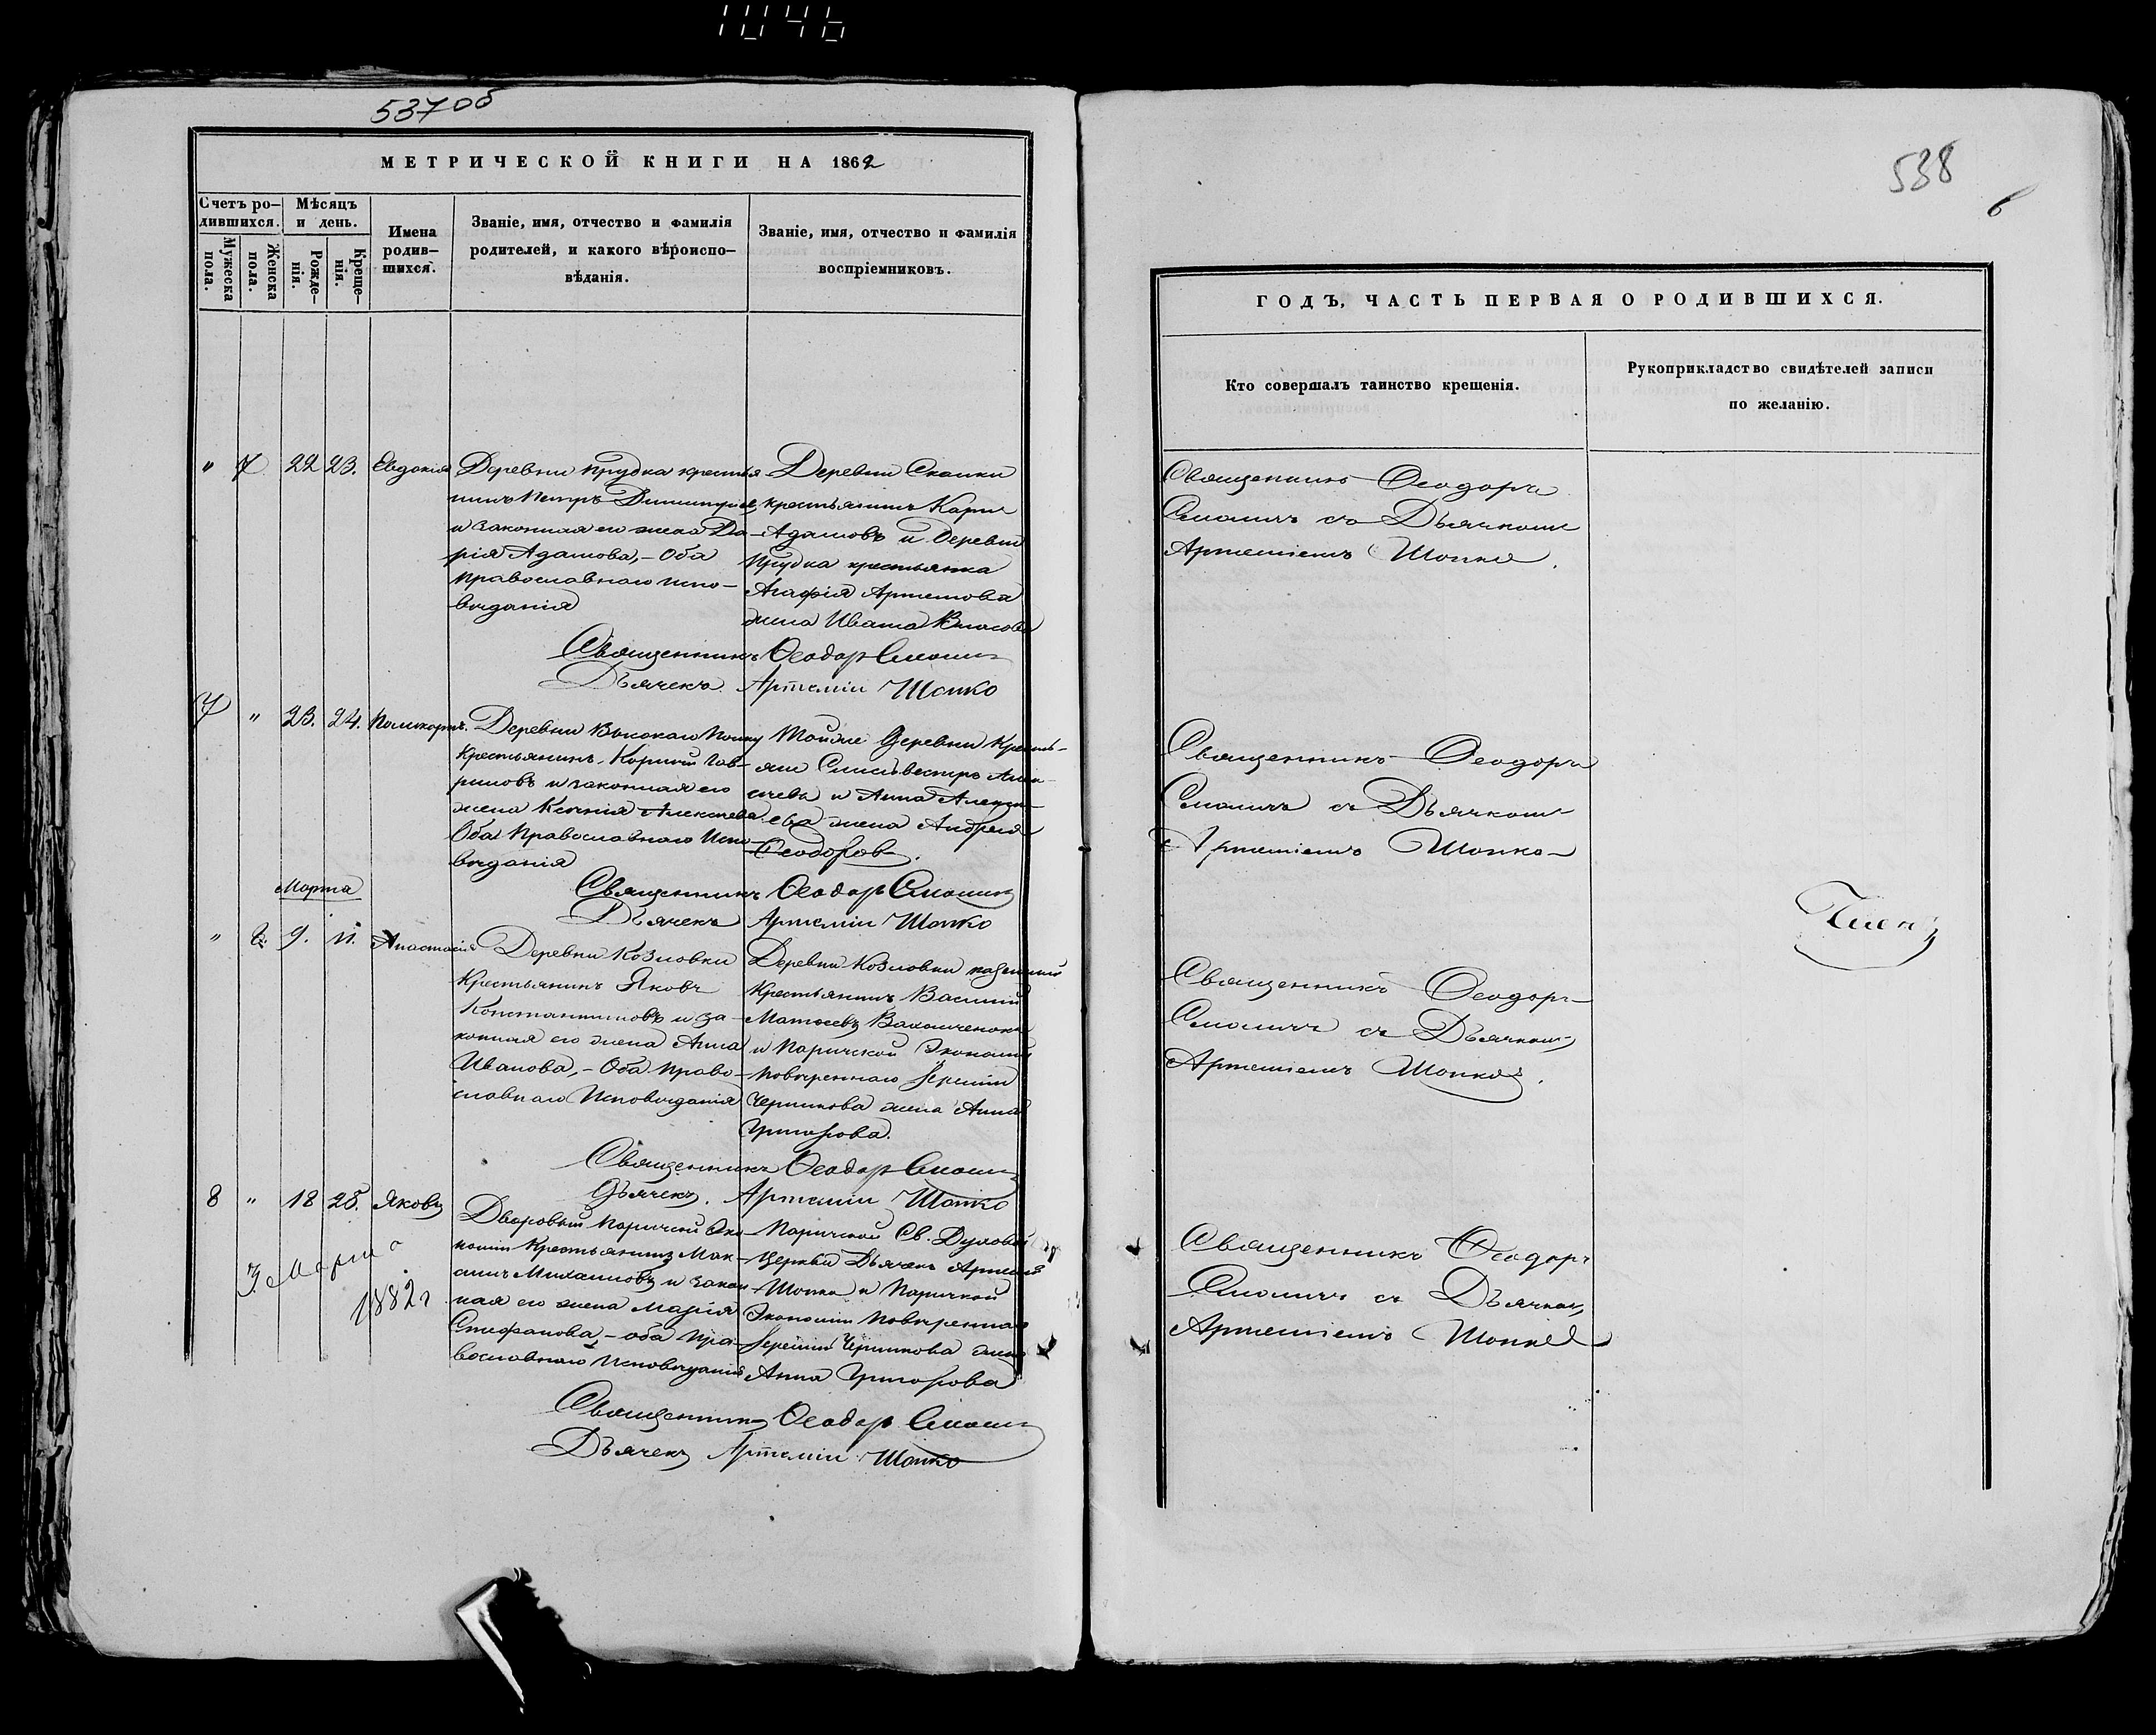 1046
537об
МЕТРИЧЕСКОЙ КНИГИ НА 1862
Счетъ ро-
дившихся.
Мѣсяцъ
и день.
Мужеска
пола.
Женска
пола.
Рожде-
нія.
Креще-
нія.
Имена
родив-
шихся.
Званіе, имя, отчество и фамилія
родителей, и какого вѣроиспо-
вѣданія.
Званіе, имя, отчество и фамилія
воспріемниковъ.
" 7 22 23. Евдокія
Деревни Прудка крестья
нинъ Петръ Димитріев
и законная его жена Да-
рія Адамова,- Оба
православнаго испо-
вѣданія
Деревни
крестьянинъ Карпъ
Адамовъ и деревни
Прудка крестьянка
Агафія Артемова
жена Ивана Власова
Священникъ Ѳеодоръ Смоличъ
Дьячекъ Артемій Шопко
7 " 23. 24. Поликарпъ.
Деревни Высокаго Полку
Крестьянинъ Корнилій Гав-
риловъ и законная его
жена Ксенія Алексѣева
Оба Православнаго Испо-
вѣданія
Тойже деревни Кресть-
яне Сильвестръ
и Анна Алексѣ-
ева жена Андрея
Ѳеодорова.
Священникъ Ѳеодоръ Смоличъ
Дьячекъ Артемій Шопко
Марта
" 8. 9. 11. Анастасія
Деревни Козловки
Крестьянинъ Яковъ
Константиновъ и за-
конная его жена Анна
Иванова,- Оба право-
славнаго Исповѣданія
Деревни Козловки казенный
Крестьянинъ Василій
Матѳеевъ
и Паричской Экономіи
повѣреннаго
жена Анна
Григорова.
Священникъ Ѳеодоръ Смоличъ
Дьячекъ. Артемій Шопко
8 " 18 25. Яковъ
Дворовый Паричской Эко-
номіи Крестьянинъ Мак-
симъ Михаиловъ и закон-
ная его жена Марія
Стефанова,- оба пра-
вославнаго Исповѣданія
Паричской Св. Духовой
Церкви Дьячекъ Артемій
Шопко и Паричской
Экономіи повѣреннаго
жена
Анна Григорова
Марта
1882 г
Священникъ Ѳеодоръ Смоличъ
Дьячекъ Артемій Шопко
538
6
ГОДЪ, ЧАСТЬ ПЕРВАЯ О РОДИВШИХСЯ.
Кто совершалъ таинство крещенія.
Рукоприкладство свидѣтелей записи
по желанію.
Священникъ Ѳеодоръ
Смоличъ съ Дьячкомъ
Артеміемъ Шопко.
Священникъ Ѳеодоръ
Смоличъ съ Дьячкомъ
Артеміемъ Шопко
Священникъ Ѳеодоръ
Смоличъ съ Дьячкомъ
Артеміемъ Шопко.
Священникъ Ѳеодоръ
Смоличъ съ Дьячкомъ
Артеміемъ Шопко